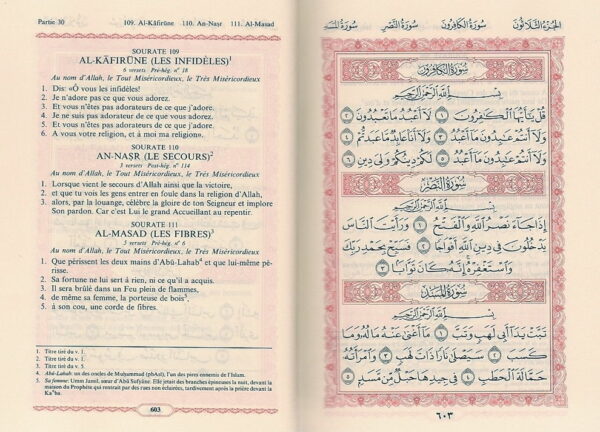 Partie 30
109. Al-Kāfirūne 110. An-Naṣr 111. Al-Masad
SOURATE 109
AL-KĀFIRŪNE (LES INFIDÈLES)¹
6 versets Pré-hég. n° 18
Au nom d'Allah, le Tout Miséricordieux, le Très Miséricordieux
1. Dis: «Ô vous les infidèles!
2. Je n'adore pas ce que vous adorez.
3. Et vous n'êtes pas adorateurs de ce que j'adore.
4. Je ne suis pas adorateur de ce que vous adorez.
5. Et vous n'êtes pas adorateurs de ce que j'adore.
6. A vous votre religion, et à moi ma religion».
SOURATE 110
AN-NAṢR (LE SECOURS)²
3 versets Post-hég. n° 114
Au nom d'Allah, le Tout Miséricordieux, le Très Miséricordieux
1. Lorsque vient le secours d'Allah ainsi que la victoire,
2. et que tu vois les gens entrer en foule dans la religion d'Allah,
3. alors, par la louange, célèbre la gloire de ton Seigneur et implore
Son pardon. Car c'est Lui le grand Accueillant au repentir.
SOURATE 111
AL-MASAD (LES FIBRES)³
5 versets Pré-hég. n° 6
Au nom d'Allah, le Tout Miséricordieux, le Très Miséricordieux
1. Que périssent les deux mains d'Abū-Lahab⁴ et que lui-même pé-
risse.
2. Sa fortune ne lui sert à rien, ni ce qu'il a acquis.
3. Il sera brûlé dans un Feu plein de flammes,
4. de même sa femme, la porteuse de bois⁵,
5. à son cou, une corde de fibres.
1. Titre tiré du v. 1.
2. Titre tiré du v. 1.
3. Titre tiré du v. 5.
4. Abū-Lahab: un des oncles de Muḥammad (pbAsl), l'un des pires ennemis de l'Islam.
5. Sa femme: Umm Jamil, sœur d'Abū Sufyāne. Elle jetait des branches épineuses la nuit, devant la
maison du Prophète qui rentrait par des rues non éclairées, tardivement après la prière devant la
Kaʿba.
603
الجزء الثلاثون
سورة الكافرون
سورة النصر
سورة المسد
سُورَةُ الكَافِرُونَ
بِسْمِ اللَّهِ الرَّحْمَٰنِ الرَّحِيمِ
قُلْ يَٰٓأَيُّهَا ٱلْكَٰفِرُونَ ١ لَآ أَعْبُدُ مَا تَعْبُدُونَ ٢
وَلَآ أَنتُمْ عَٰبِدُونَ مَآ أَعْبُدُ ٣ وَلَآ أَنَا۠ عَابِدٌ مَّا عَبَدتُّمْ ٤
وَلَآ أَنتُمْ عَٰبِدُونَ مَآ أَعْبُدُ ٥ لَكُمْ دِينُكُمْ وَلِىَ دِينِ ٦
سُورَةُ النَّصْرِ
بِسْمِ اللَّهِ الرَّحْمَٰنِ الرَّحِيمِ
إِذَا جَآءَ نَصْرُ ٱللَّهِ وَٱلْفَتْحُ ١ وَرَأَيْتَ ٱلنَّاسَ
يَدْخُلُونَ فِى دِينِ ٱللَّهِ أَفْوَاجًا ٢ فَسَبِّحْ بِحَمْدِ رَبِّكَ
وَٱسْتَغْفِرْهُ إِنَّهُۥ كَانَ تَوَّابًۢا ٣
سُورَةُ المَسَدِ
بِسْمِ اللَّهِ الرَّحْمَٰنِ الرَّحِيمِ
تَبَّتْ يَدَآ أَبِى لَهَبٍ وَتَبَّ ١ مَآ أَغْنَىٰ عَنْهُ مَالُهُۥ وَمَا
كَسَبَ ٢ سَيَصْلَىٰ نَارًا ذَاتَ لَهَبٍ ٣ وَٱمْرَأَتُهُۥ
حَمَّالَةَ ٱلْحَطَبِ ٤ فِى جِيدِهَا حَبْلٌ مِّن مَّسَدٍۭ ٥
٦٠٣